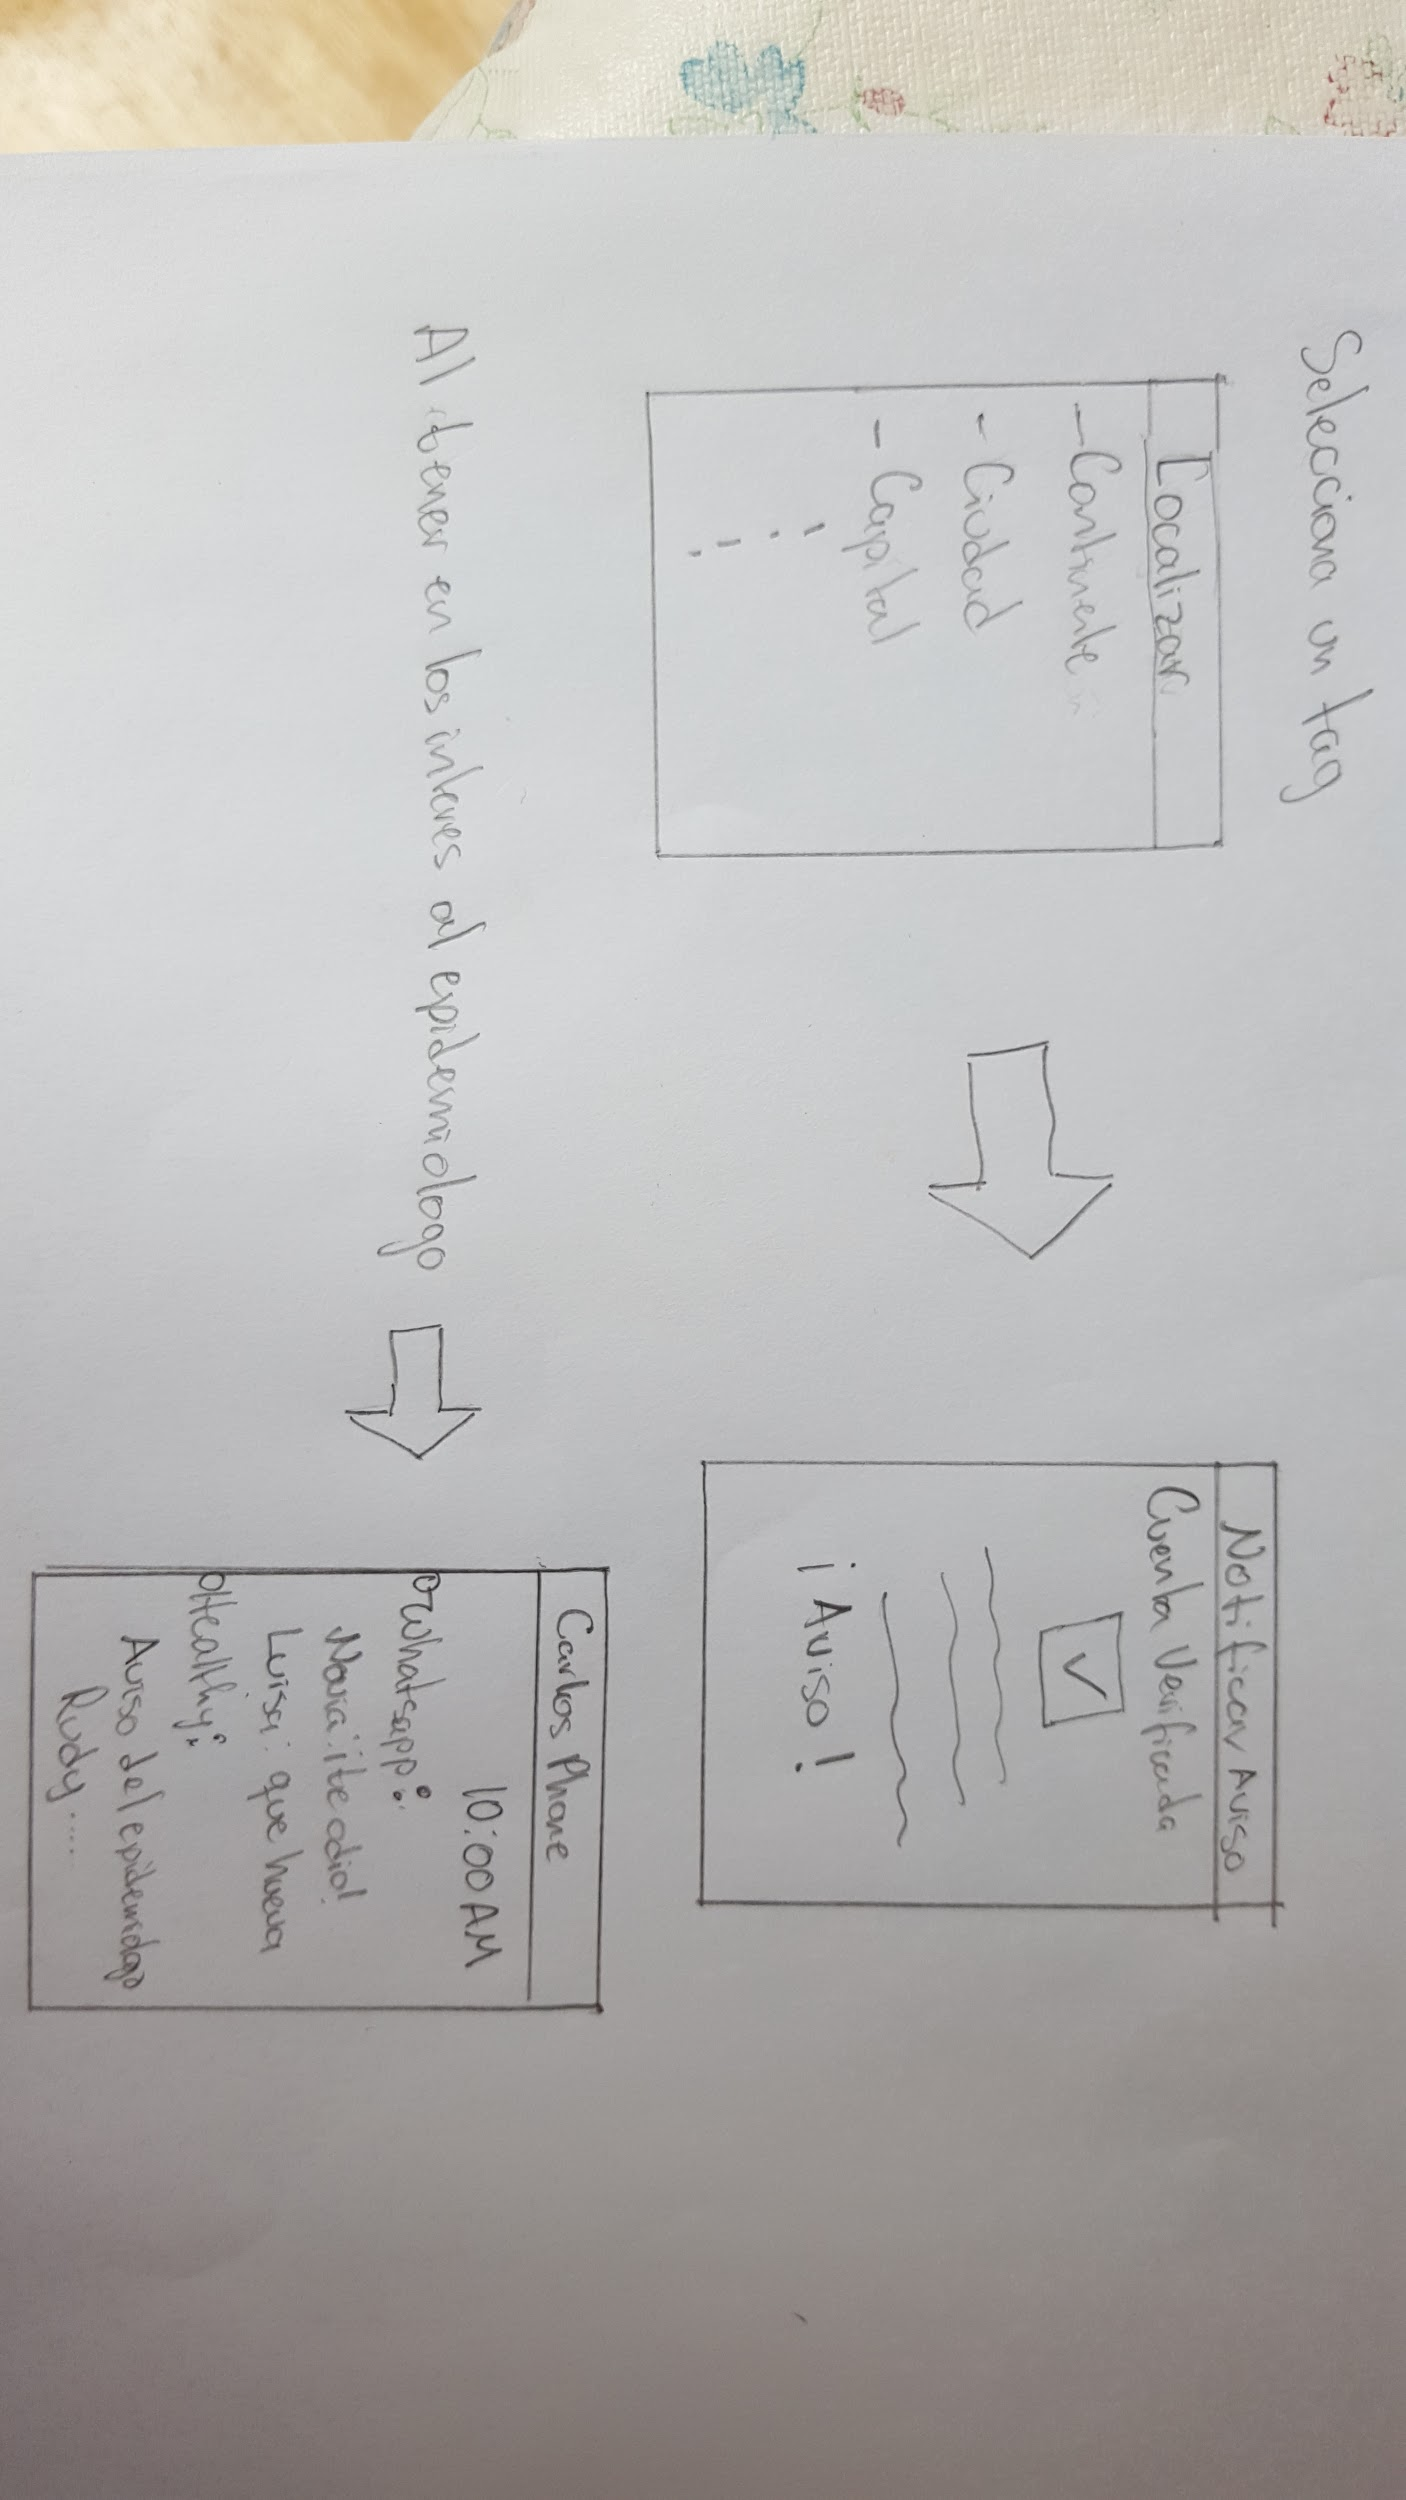 Selecciona un tag
Localizar
- Continente
- Ciudad
- Capital
Notificar Aviso
Cuenta Verificada
¡Aviso!
Al tener en los interes al epidemiologo
Carlos Phone
10:00AM
Whatsapp:
: ¡te odio!
Luisa: que hueva
Healthy:
Aviso del epidemiologo
Rudy.....